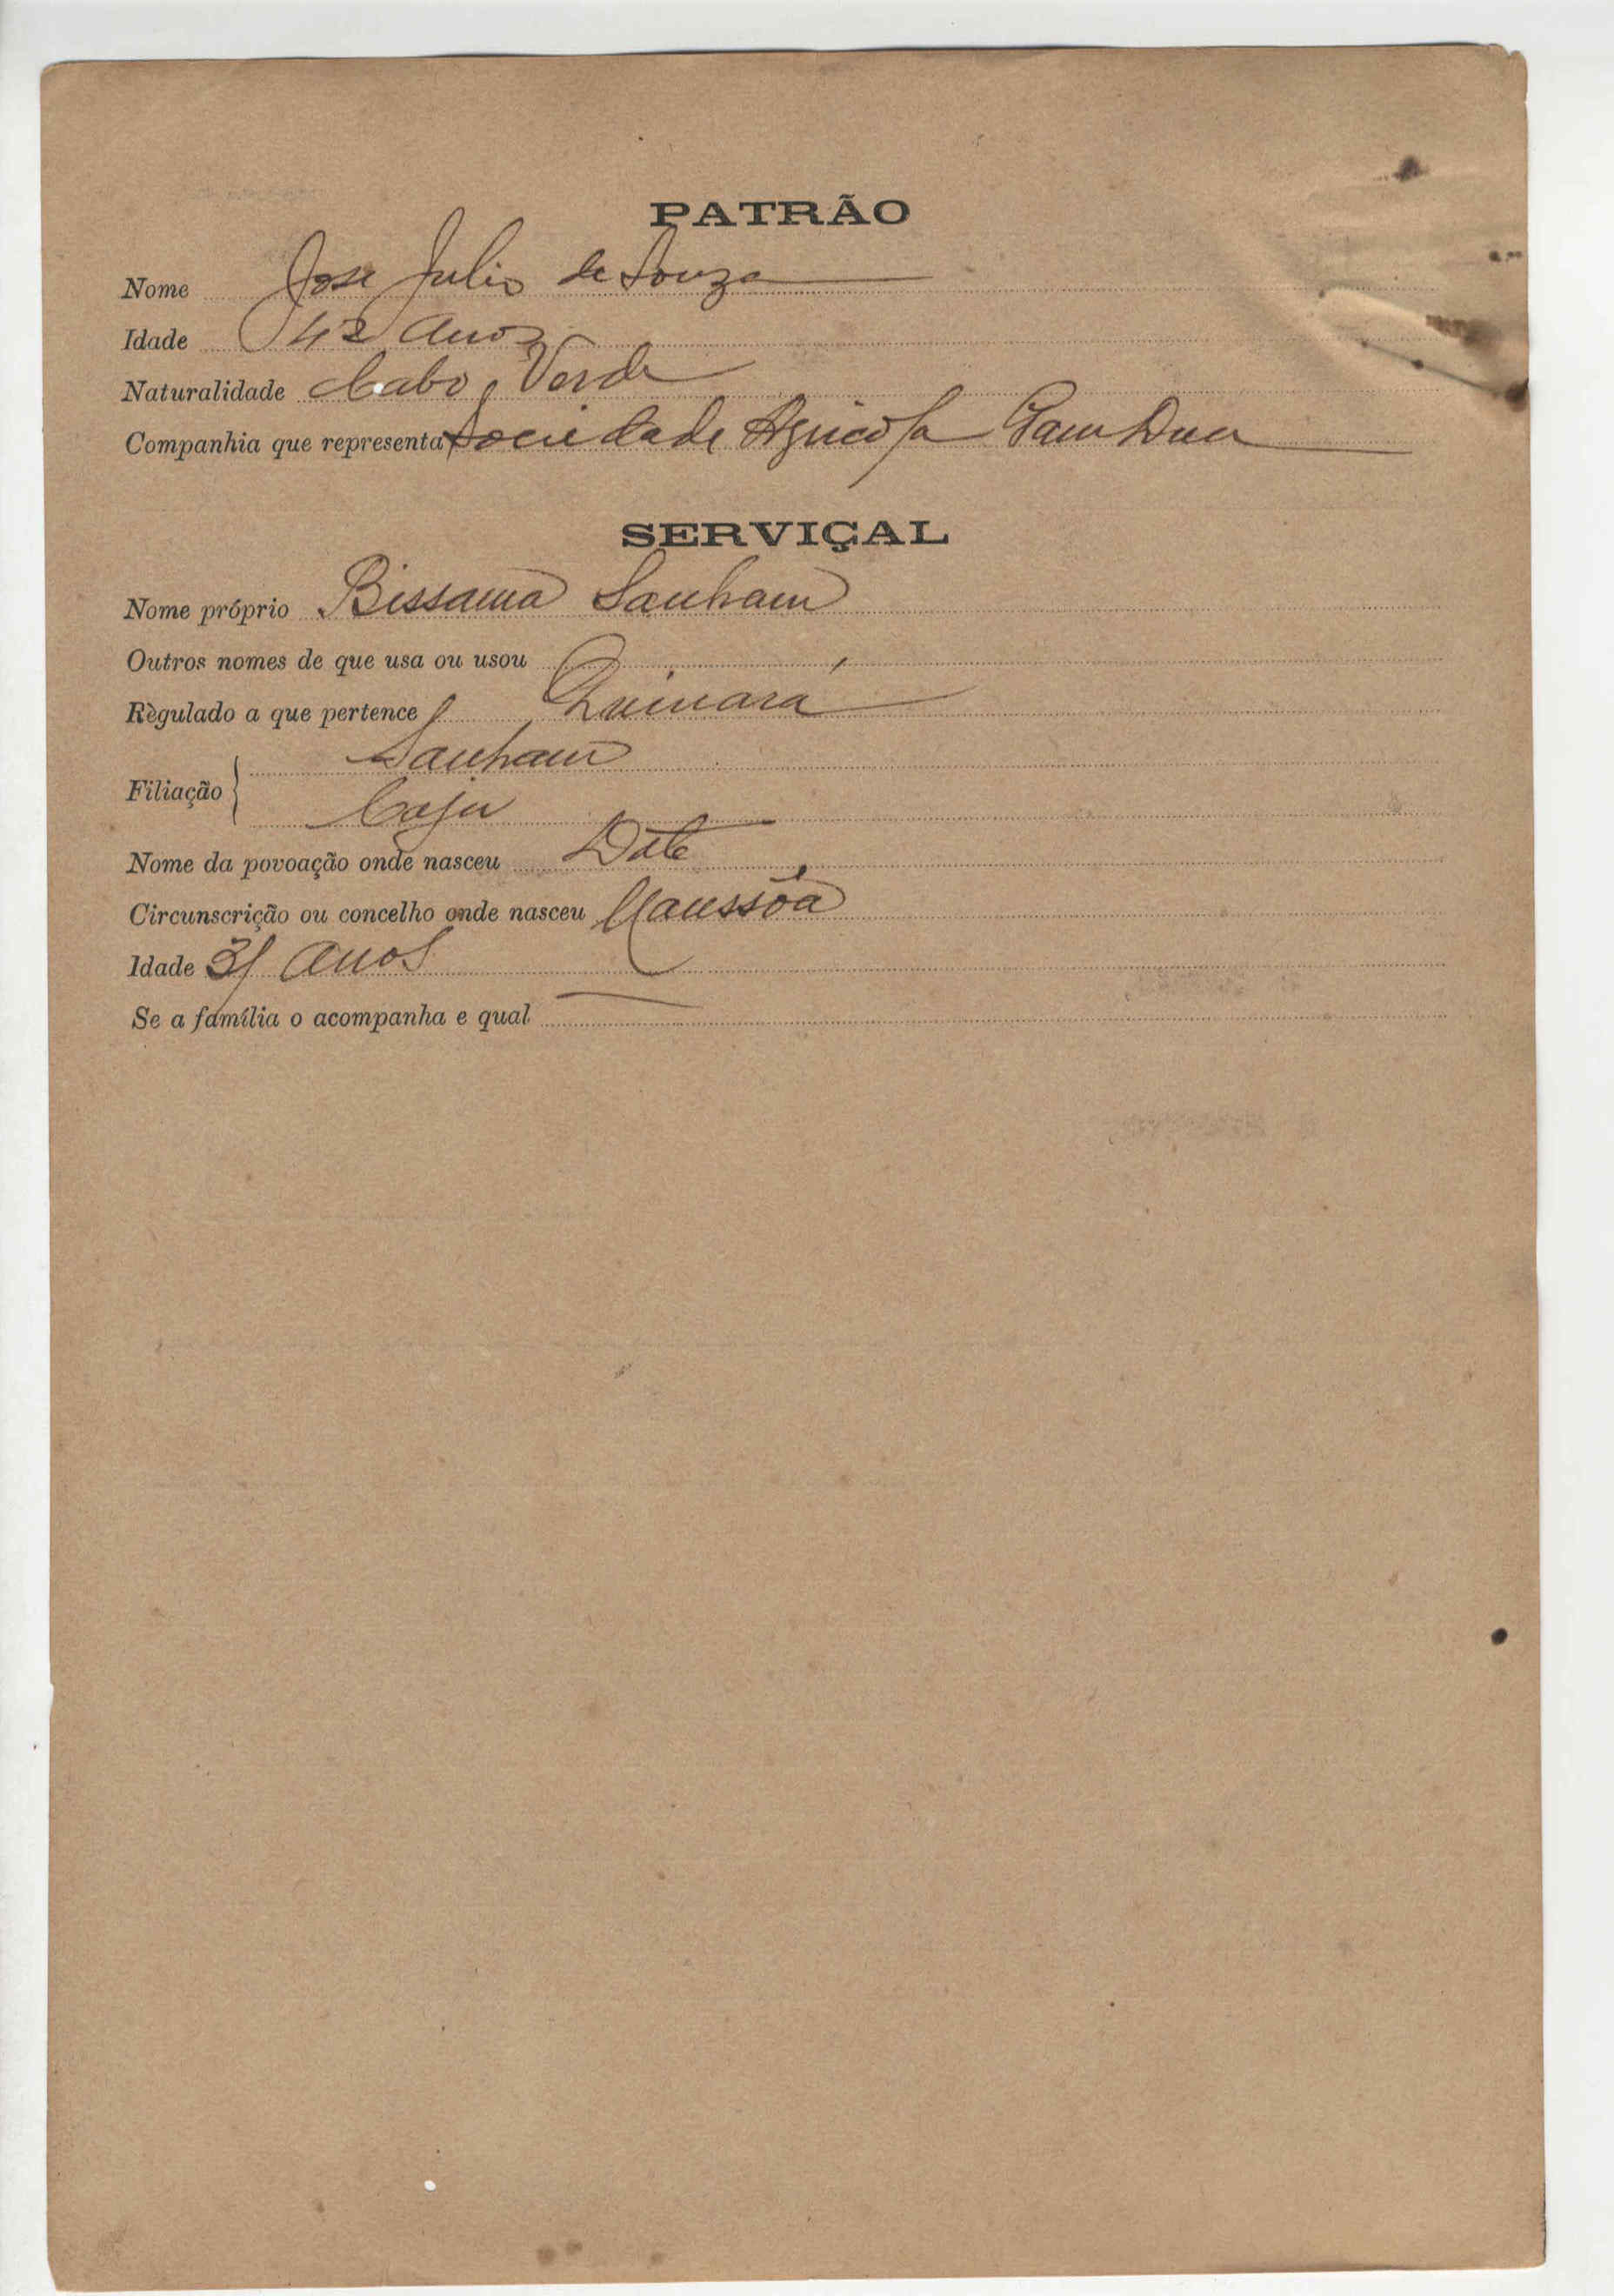 PATRÃO
Nome José Julio de Souza
Idade 42 anos
Naturalidade Cabo Verde
Companhia que representa Sociedade Agricola Gambiel
SERVIÇAL
Nome próprio Bissama Sanham
Outros nomes de que usa ou usou
Règulado a que pertence Quinará
Filiação Sanham
Caju
Nome da povoação onde nasceu
Circunscrição ou concelho onde nasceu Manssôa
Idade 31 anos
Se a família o acompanha e qual